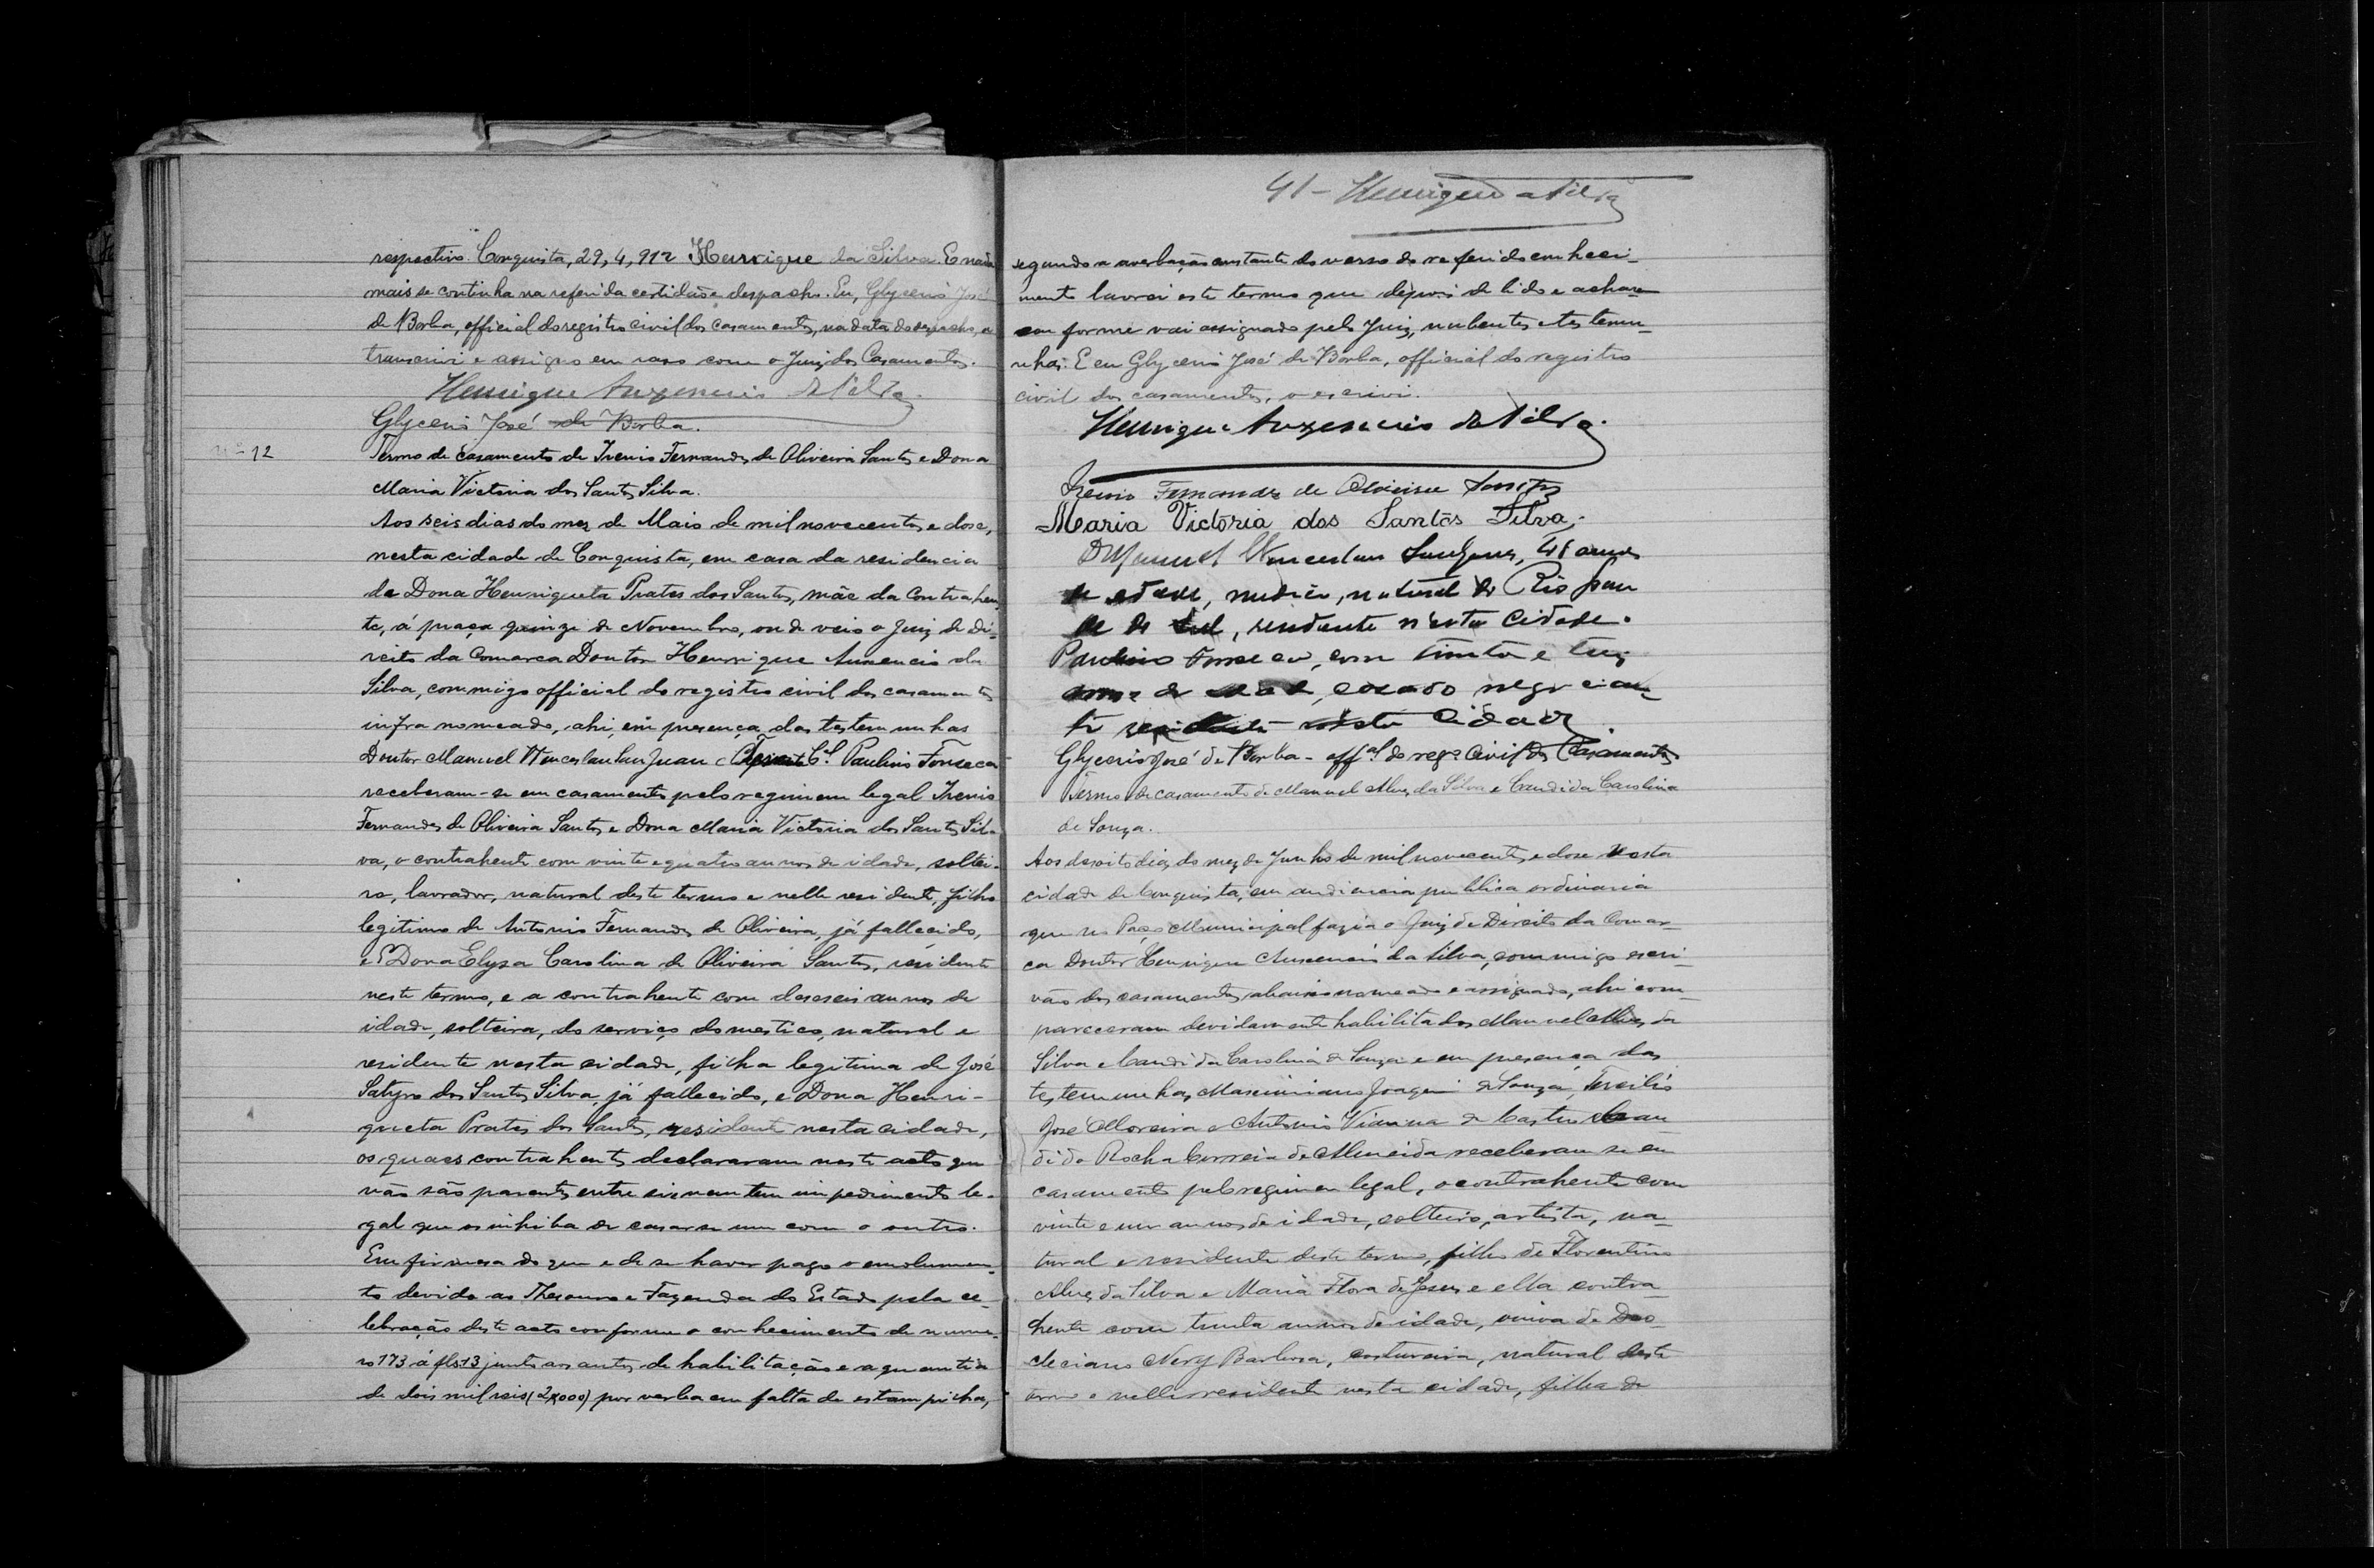 respectivo. Conquista, 29, 4, 912 Henrique da Silva. E nada
mais se continha na referida certidão e despacho. Eu, Glycerio José
de Borba, official do registro civil dos casamentos, na data do despacho, a
transcrevi e assigno em raso com o Juiz dos Casamentos.
Henrique Auxencio da Silva.
Glycerio José de Borba.
nº 12
Termo de casamento de Irenio Fernandes de Oliveira Santos e Dona
Maria Victoria dos Santos Silva.
Aos seis dias do mez de Maio de mil novecentos e dose,
nesta cidade de Conquista, em casa da residencia
de Dona Henriqueta Prates dos Santos, mãe da contrahen-
te, á praça quinze de Novembro, onde veio o Juiz de Di-
reito da Comarca Doutor Henrique Auxencio da
Silva, commigo official do registro civil dos casamentos
infra nomeado, ahi, em presença das testemunhas
Doutor Manuel Wenceslau SanJuan e Cel. Paulino Fonseca
receberam-se em casamento pelo regimem legal Irenio
Fernandes de Oliveira Santos e Dona Maria Victoria dos Santos Sil-
va, o contrahente com vinte e quatro annos de idade, soltei-
ro, lavrador, natural deste termo e nelle residente, filho
legitimo de Antonio Fernandes de Oliveira, já fallecido,
e Dona Elyza Carolina de Oliveira Santos, residente
neste termo, e a contrahente com deseseis annos de
idade, solteira, do serviço domestico, natural e
residente nesta cidade, filha legitima de José
Satyro dos Santos Silva, já fallecido, e Dona Henri-
queta Prates dos Santos, residente nesta cidade,
os quaes contrahentes declararam neste acto que
não são parentes entre si e nem tem impedimento le-
gal que os inhiba de casar-se um com o outro.
Em firmesa do que e de se haver pago o emolumen-
to devido ao Thesouro e Fazenda do Estado pela ce-
lebração deste acto conforme o conhecimento de nume-
ro 173 á fls 13 junto aos autos de habilitação e a quantia
de dois mil reis (2$000) por verba em falta de estampilha,
41 - Henrique da Silva
segundo a averbação constante do verso do referido conheci-
mento lavrei este termo que depois de lido e achare
conforme vai assignado pelo Juiz, nubentes e testemu-
nhas. E eu Glycerio José de Borba, official do registro
civil dos casamentos, o escrivi.
Henrique Auxencio da Silva.
Irenio Fernandes de Oliveira Santos
Maria Victória dos Santos Silva.
Dr Manuel Wenceslau SanJuan, 41 annos
de edade, medico, natural do Rio Gran
de do Sul, residente n'esta Cidade.
Paulino Fonseca, com trinta e tres
annos de edade, casado negocian-
te residente nesta Cidade
Glycerio José de Borba - offal do rego Civil dos Casamentos
Termo de casamento de Manuel Alves da Silva e Candida Carolina
de Souza.
Aos desoito dias do mez de Junho de mil novecentos e dose nesta
cidade de Conquista, em audiencia publica ordinaria
que no Paço Municipal fazia o Juiz de Direito da Comar-
ca Doutor Henrique Auxencio da Silva, commigo escri-
vão dos casamentos abaixo nomeado e assignado, ahi com-
pareceram devidamente habilitados Manuel Alves da
Silva e Candida Carolina de Souza e em presença das
testemunhas Maximiano Joaquim de Souza, Tercilio
José Moreira e Antonio Vianna de Castro e Can
dido Rocha Correia de Almeida receberam-se em
casamento pelo regimen legal, o contrahente com
vinte e um annos de idade, solteiro, artista, na-
tural e residente deste termo, filho de Florentino
Alves da Silva e Maria Flora de Jesus e ella contra-
hente com trinta annos de idade, viuva de Deo-
cleciano Nery Barbosa, costureira, natural deste
termo e nelle residente nesta cidade, filha de